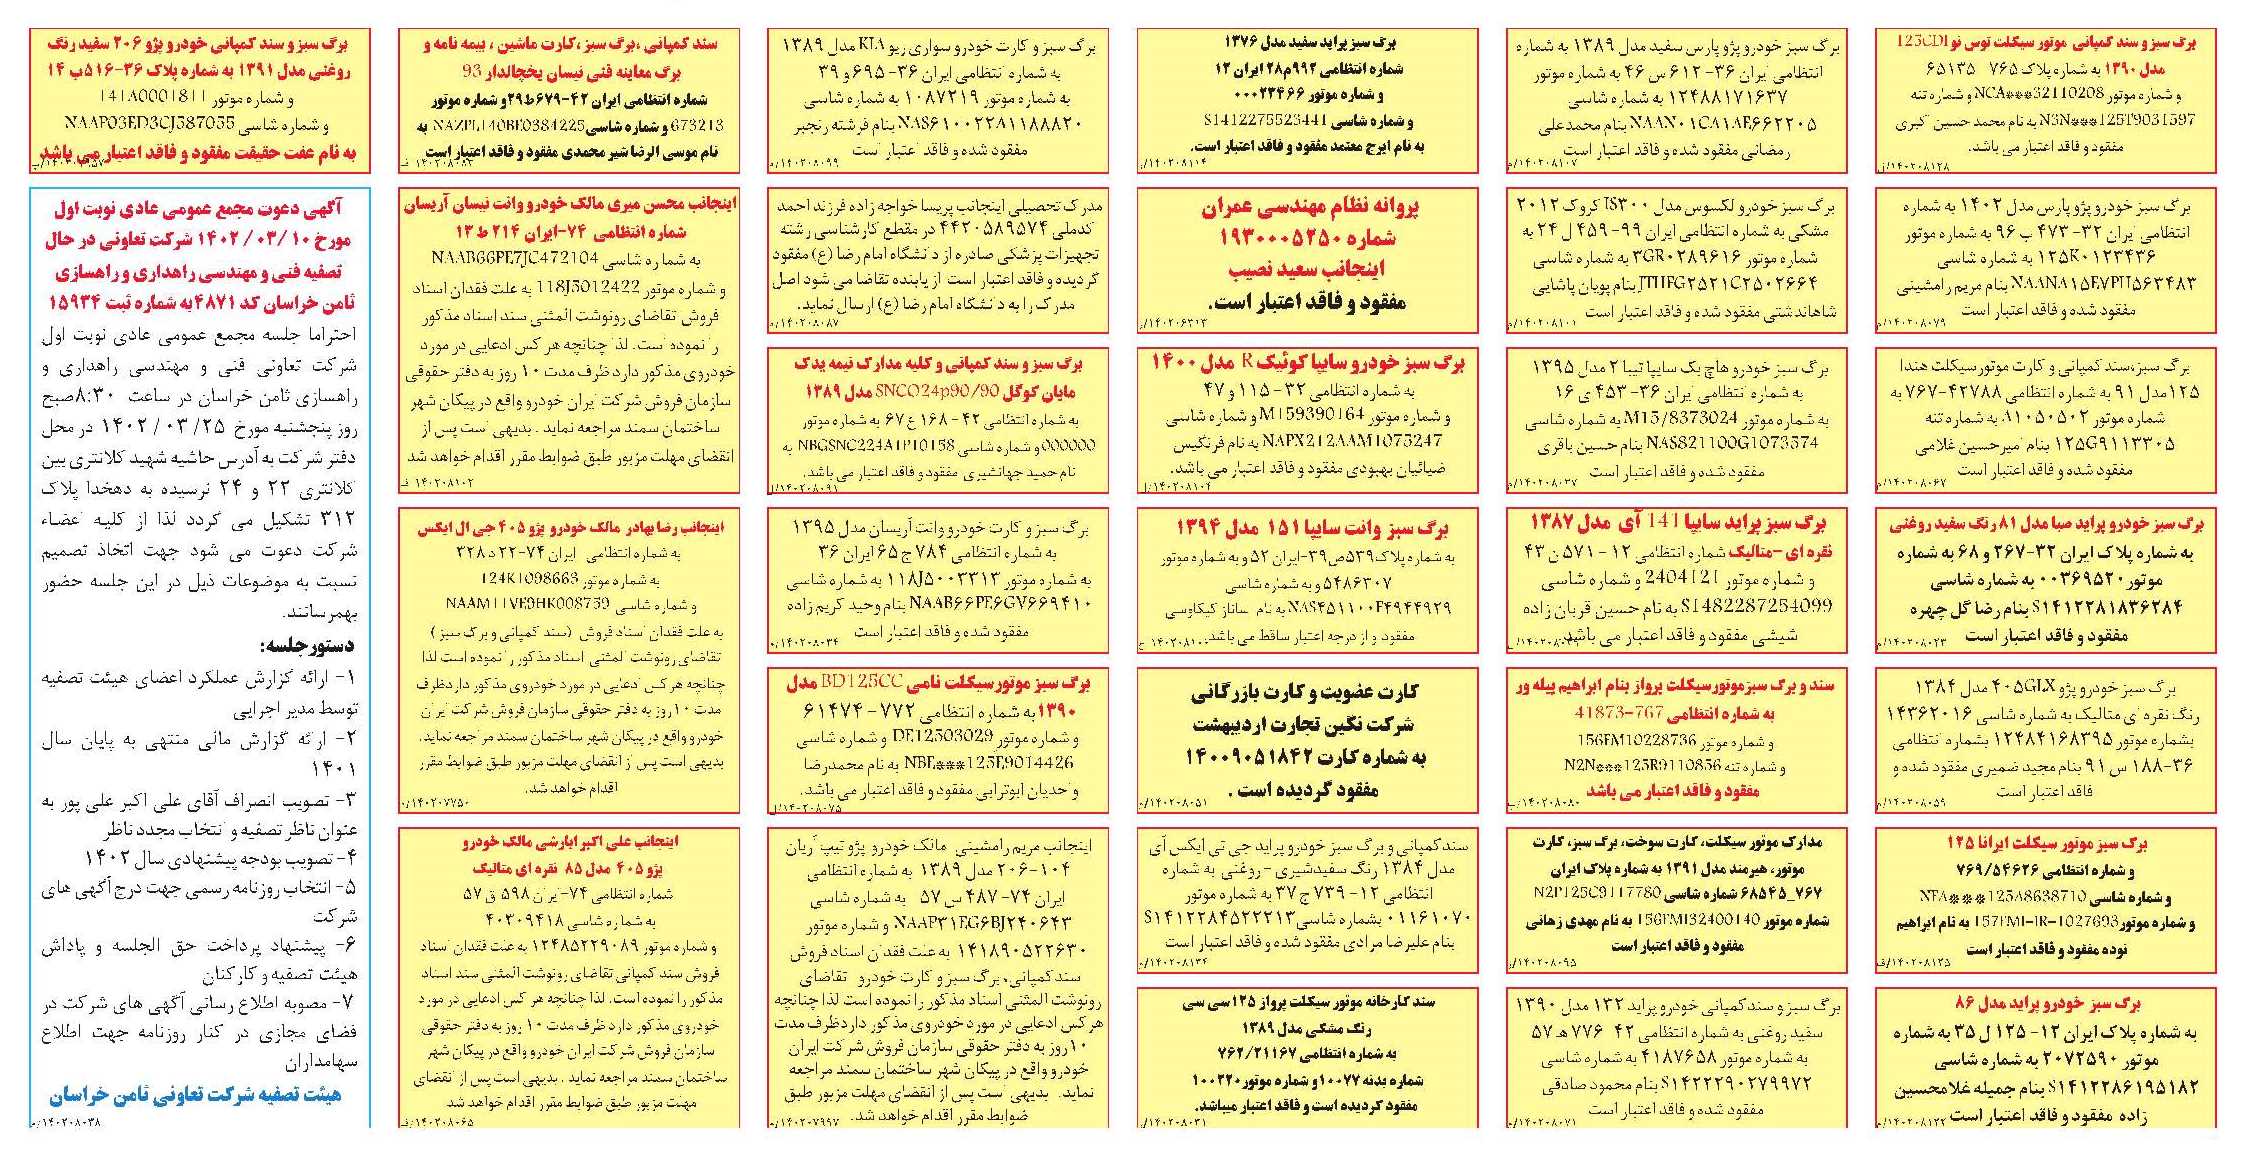 برگ سبز و سند کمپانی موتور سیکلت توس نو 125CDI
مدل ۱۳۹۰ به شماره پلاک ۷۶۵ ۶۵۱۳۵
و شماره موتور NCA***32110208 و شماره تنه
N3N***125T9031597 به نام محمد حسین اکبری
مفقود و فاقد اعتبار می باشد.
۱۴۰۲۰۸۱۲۸/ل
برگ سبز خودرو پژو پارس مدل ۱۴۰۲ به شماره
انتظامی ایران ۳۲-۴۷۳ ب ۹۶ به شماره موتور
۱۲۵K۰۱۲۳۴۳۶ به شماره شاسی
NAANA۱۵E۷PU۵۶۲۴۸۳ بنام مریم رامشینی
مفقود شده و فاقد اعتبار است
۱۴۰۲۰۸۰۷۹/م
برگ سبز،سند کمپانی و کارت موتورسیکلت هندا
۱۲۵مدل ۹۱ به شماره انتظامی ۴۲۷۸۸-۷۶۷ به
شماره موتور ۱۱۰۵۰۵۰۲.به شماره تنه
۱۲۵G۹۱۱۳۳۰۵ بنام امیرحسین غلامی
مفقود شده و فاقد اعتبار است
۱۴۰۲۰۸۰۶۷/م
برگ سبز خودرو پراید صبا مدل ۸۱ رنگ سفید روغنی
به شماره پلاک ایران ۳۲-۲۶۷ و ۶۸ به شماره
موتور۰۰۳۶۹۵۲۰ به شماره شاسی
S۱۴۱۲۲۸۱۸۳۶۲۸۴ بنام رضا گل چهره
مفقود و فاقد اعتبار است
۱۴۰۲۰۸۰۲۳/م
برگ سبز خودرو پژو ۴۰۵GLX مدل ۱۳۸۴
رنگ نقره ای متالیک به شماره شاسی ۱۴۳۶۲۰۱۶
بشماره موتور ۱۲۴۸۴۱۶۸۳۹۵ بشماره انتظامی
۳۶-۱۸۸ س ۹۱ بنام مجید ضمیری مفقود شده و
فاقد اعتبار است
۱۴۰۲۰۸۰۵۹/م
برگ سبز موتور سیکلت ایرانا ۱۲۵
و شماره انتظامی ۷۶۹/۵۴۶۲۶
و شماره شاسی NFA***125A8638710
و شماره موتور157FMI-IR-1027693 به نام ابراهیم
نوده مفقود و فاقد اعتبار است
۱۴۰۲۰۸۱۲۵/ف
برگ سبز خودرو پراید مدل ۸۶
به شماره پلاک ایران ۱۲- ۱۲۵ ل ۳۵ به شماره
موتور ۲۰۷۲۵۹۰ به شماره شاسی
S۱۴۱۲۲۸۶۱۹۵۱۸۲ بنام جمیله غلامحسین
زاده مفقود و فاقد اعتبار است
۱۴۰۲۰۸۱۲۲/م
برگ سبز خودرو پژو پارس سفید مدل ۱۳۸۹ به شماره
انتظامی ایران ۳۶- ۶۱۲ س ۴۶ به شماره موتور
۱۲۴۸۸۱۷۱۶۳۷ به شماره شاسی
NAAN۰۱CA۱AE۶۶۲۲۰۵ بنام محمدعلی
رمضانی مفقود شده و فاقد اعتبار است
۱۴۰۲۰۸۱۰۷/م
برگ سبز خودرو لکسوس مدل IS۳۰۰ کروک ۲۰۱۲
مشکی به شماره انتظامی ایران ۹۹-۴۵۹ ل ۲۴ به
شماره موتور ۳GR۰۲۸۹۶۱۶ به شماره شاسی
JTHFG۲۵۲۱C۲۵۰۲۶۶۴ بنام پویان پاشایی
شاهاندشتی مفقود شده و فاقد اعتبار است
۱۴۰۲۰۸۱۰۱/م
برگ سبز خودرو هاچ بک سایپا تیبا ۲ مدل ۱۳۹۵
به شماره انتظامی ایران ۳۶-۴۵۳ ی ۱۶
به شماره موتور M15/8373024 به شماره شاسی
NAS821100G1073574 بنام حسین باقری
مفقود شده و فاقد اعتبار است
۱۴۰۲۰۸۰۳۷/م
برگ سبز پراید سایپا 141 آی مدل ۱۳۸۷
نقره ای -متالیک شماره انتظامی ۱۲ - ۵۷۱ ن ۴۳
و شماره موتور 2404121 و شماره شاسی
S1482287254099 به نام حسین قربان زاده
شیشی مفقود و فاقد اعتبار می باشد.
سند و برگ سبزموتورسیکلت پرواز بنام ابراهیم پیله ور
به شماره انتظامی 767-41873
و شماره موتور 156FM10228736
و شماره تنه N2N***125R9110856
مفقود و فاقد اعتبار می باشد
۱۴۰۲۰۸۰۸۰/ب
مدارک موتور سیکلت، کارت سوخت، برگ سبز، کارت
موتور، هیرمند مدل ۱۳۹۱ به شماره پلاک ایران
۷۶۷_۶۸۵۴۵ شماره شاسی N2P125C9117780
شماره موتور 156FMI32400140 به نام مهدی زهانی
مفقود و فاقد اعتبار است
۱۴۰۲۰۸۰۹۵/ر
برگ سبز و سندکمپانی خودرو پراید ۱۳۲ مدل ۱۳۹۰
سفید روغنی به شماره انتظامی ۴۲ ۷۷۶ هـ ۵۷
به شماره موتور ۴۱۸۷۶۵۸ به شماره شاسی
S۱۴۲۲۲۹۰۲۷۹۹۷۲ بنام محمود صادقی
مفقود شده و فاقد اعتبار است
۱۴۰۲۰۸۰۷۱/م
برگ سبز پراید سفید مدل ۱۳۷۶
شماره انتظامی ۹۹۲م۲۸ ایران ۱۲
و شماره موتور ۰۰۰۲۳۴۶۶
و شماره شاسی S1412275523441
به نام ایرج معتمد مفقود و فاقد اعتبار است.
۱۴۰۲۰۸۱۱۴/ر
پروانه نظام مهندسی عمران
شماره ۱۹۳۰۰۰۵۲۵۰
اینجانب سعید نصیب
مفقود و فاقد اعتبار است.
۱۴۰۲۰۶۳۲۳/ر
برگ سبز خودرو سایپا کوئیک R مدل ۱۴۰۰
به شماره انتظامی ۳۲-۱۱۵ و ۴۷
و شماره موتور M159390164 و شماره شاسی
NAPX212AAM1075247 به نام فرنگیس
ضیائیان بهبودی مفقود و فاقد اعتبار می باشد.
۱۴۰۲۰۸۱۰۴/ل
برگ سبز وانت سایپا ۱۵۱ مدل ۱۳۹۴
به شماره پلاک۵۳۹ص۳۹-ایران ۵۲ و به شماره موتور
۵۴۸۶۳۰۷ و به شماره شاسی
NAS۴۵۱۱۰۰F۴۹۴۴۹۲۹ به نام ساناز کیکاوسی
مفقود و از درجه اعتبار ساقط می باشد.
کارت عضویت و کارت بازرگانی
شرکت نگین تجارت اردیبهشت
به شماره کارت ۱۴۰۰۹۰۵۱۸۴۲
مفقود گردیده است .
۱۴۰۲۰۸۰۵۱/ر
سندکمپانی و برگ سبز خودرو پراید جی تی ایکس آی
مدل ۱۳۸۴ رنگ سفیدشیری -روغنی به شماره
انتظامی ۱۲- ۷۳۹ ج ۳۷ به شماره موتور
۰۱۱۶۱۰۷۰ بشماره شاسی S۱۴۱۲۲۸۴۵۲۲۲۱۳
بنام علیرضا مرادی مفقود شده و فاقد اعتبار است
۱۴۰۲۰۸۱۳۴/م
سند کارخانه موتور سیکلت پرواز ۱۲۵ سی سی
رنگ مشکی مدل ۱۳۸۹
به شماره انتظامی ۷۶۲/۲۱۱۶۷
شماره بدنه ۱۰۰۷۷ و شماره موتور۱۰۰۲۲۰
مفقود گردیده است و فاقد اعتبار میباشد.
۱۴۰۲۰۸۰۳۱/ر
برگ سبز و کارت خودرو سواری ریو KIA مدل ۱۳۸۹
به شماره انتظامی ایران ۳۶-۶۹۵ و ۳۹
به شماره موتور ۱۰۸۷۲۱۹ به شماره شاسی
NAS۶۱۰۰۲۲A۱۱۸۸۸۲۰ بنام فرشته رنجبر
مفقود شده و فاقد اعتبار است
۱۴۰۲۰۸۰۹۹/م
مدرک تحصیلی اینجانب پریسا خواجه زاده فرزند احمد
کدملی ۴۴۲۰۵۸۹۵۷۴ در مقطع کارشناسی رشته
تجهیزات پزشکی صادره از دانشگاه امام رضا (ع) مفقود
گردیده و فاقد اعتبار است از یابنده تقاضا می شود اصل
مدرک را به دانشگاه امام رضا (ع) ارسال نماید.
۱۴۰۲۰۸۰۸۷/م
برگ سبز و سند کمپانی و کلیه مدارک نیمه یدک
مایان کوگل SNCO24p90/90 مدل ۱۳۸۹
به شماره انتظامی ۴۲ - ۱۶۸ ع ۶۷ به شماره موتور
000000 و شماره شاسی NBGSNC224A1P10158 به
نام حمید جهانشیری مفقود و فاقد اعتبار می باشد.
۱۴۰۲۰۸۰۹۱/ل
برگ سبز و کارت خودرو وانت آریسان مدل ۱۳۹۵
به شماره انتظامی ۷۸۴ ج ۶۵ ایران ۳۶
به شماره موتور ۱۱۸J۵۰۰۳۳۱۳ به شماره شاسی
NAAB۶۶PE۶GV۶۶۹۴۱۰ بنام وحید کریم زاده
مفقود شده و فاقد اعتبار است
۱۴۰۲۰۸۰۳۴/م
برگ سبز موتورسیکلت نامی BD125CC مدل
۱۳۹۰ به شماره انتظامی ۷۷۲ - ۶۱۴۷۴
و شماره موتور DE12503029 و شماره شاسی
NBE***125E9014426 به نام محمدرضا
واحدیان ابوترابی مفقود و فاقد اعتبار می باشد.
۱۴۰۲۰۸۰۷۵/ل
اینجانب مریم رامشینی مالک خودرو پژو تیپ آریان
۲۰۶-۱۰۴ مدل ۱۳۸۹ به شماره انتظامی
ایران ۷۴- ۴۸۷ س ۵۷ به شماره شاسی
NAAP۳۱EG۶BJ۲۴۰۶۴۳ و شماره موتور
۱۴۱۸۹۰۵۲۲۶۳۰ به علت فقدان اسناد فروش
سندکمپانی، برگ سبز و کارت خودرو تقاضای
رونوشت المثنی اسناد مذکور را نموده است لذا چنانچه
هر کس ادعایی در مورد خودروی مذکور دارد ظرف مدت
۱۰روز به دفتر حقوقی سازمان فروش شرکت ایران
خودرو واقع در پیکان شهر ساختمان سمند مراجعه
نماید. بدیهی است پس از انقضای مهلت مزبور طبق
ضوابط مقرر اقدام خواهد شد.
۱۴۰۲۰۷۹۹۷/م
سند کمپانی ،برگ سبز ،کارت ماشین ، بیمه نامه و
برگ معاینه فنی نیسان یخچالدار 93
شماره انتظامی ایران ۴۲-۶۷۹ط۲۹و شماره موتور
673213 و شماره شاسیNAZPL140BE0384225 به
نام موسی الرضا شیر محمدی مفقود و فاقد اعتبار است
۱۴۰۲۰۸۰۹۳ ف
اینجانب محسن میری مالک خودرو وانت نیسان آریسان
شماره انتظامی ۷۴-ایران ۲۱۴ ط ۱۳
به شماره شاسی NAAB66PE7JC472104
و شماره موتور 118J5012422 به علت فقدان اسناد
فروش تقاضای رونوشت المثنی سند اسناد مذکور
را نموده است. لذا چنانچه هر کس ادعایی در مورد
خودروی مذکور دارد ظرف مدت ۱۰ روز به دفتر حقوقی
سازمان فروش شرکت ایران خودرو واقع در پیکان شهر
ساختمان سمند مراجعه نماید . بدیهی است پس از
انقضای مهلت مزبور طبق ضوابط مقرر اقدام خواهد شد
۱۴۰۲۰۸۱۰۲ ف
اینجانب رضا بهادر مالک خودرو پژو ۴۰۵ جی ال ایکس
به شماره انتظامی ایران ۷۴-۲۲ د۳۲۸
به شماره موتور 124K1098663
و شماره شاسی NAAM11VE9HK008759
به علت فقدان اسناد فروش (سند کمپانی و برگ سبز )
تقاضای رونوشت المثنی اسناد مذکور را نموده است لذا
چنانچه هر کس ادعایی در مورد خودروی مذکور دارد ظرف
مدت ۱۰روز به دفتر حقوقی سازمان فروش شرکت ایران
خودرو واقع در پیکان شهر ساختمان سمند مراجعه نماید.
بدیهی است پس از انقضای مهلت مزبور طبق ضوابط مقرر
اقدام خواهد شد.
۱۴۰۲۰۷۷۵۰/ر
اینجانب علی اکبر ابارشی مالک خودرو
پژو ۴۰۵ مدل ۸۵ نقره ای متالیک
شماره انتظامی ۷۴-ایران ۵۹۸ ق ۵۷
به شماره شاسی ۴۰۳۰۹۴۱۸
و شماره موتور ۱۲۴۸۵۲۲۹۰۸۹ به علت فقدان اسناد
فروش سند کمپانی تقاضای رونوشت المثنی سند اسناد
مذکور را نموده است. لذا چنانچه هر کس ادعایی در مورد
خودروی مذکور دارد ظرف مدت ۱۰ روز به دفتر حقوقی
سازمان فروش شرکت ایران خودرو واقع در پیکان شهر
ساختمان سمند مراجعه نماید . بدیهی است پس از انقضای
مهلت مزبور طبق ضوابط مقرر اقدام خواهد شد
۱۴۰۲۰۸۰۶۵/ف
برگ سبز و سند کمپانی خودرو پژو ۲۰۶ سفید رنگ
روغنی مدل ۱۳۹۱ به شماره پلاک ۳۶-۵۱۶ب ۱۴
و شماره موتور 141A0001811
و شماره شاسی NAAP03ED3CJ587055
به نام عفت حقیقت مفقود و فاقد اعتبار می باشد
آگهی دعوت مجمع عمومی عادی نوبت اول
مورخ ۱۰ /۰۳ /۱۴۰۲ شرکت تعاونی در حال
تصفیه فنی و مهندسی راهداری و راهسازی
ثامن خراسان کد ۴۸۷۱به شماره ثبت ۱۵۹۳۴
احتراما جلسه مجمع عمومی عادی نوبت اول
شرکت تعاونی فنی و مهندسی راهداری و
راهسازی ثامن خراسان در ساعت ۸:۳۰صبح
روز پنجشنبه مورخ ۲۵/ ۰۳ /۱۴۰۲ در محل
دفتر شرکت به آدرس حاشیه شهید کلانتری بین
کلانتری ۲۲ و ۲۴ نرسیده به دهخدا پلاک
۳۱۲ تشکیل می گردد لذا از کلیه اعضاء
شرکت دعوت می شود جهت اتخاذ تصمیم
نسبت به موضوعات ذیل در این جلسه حضور
بهمرسانند.
دستورجلسه:
۱- ارائه گزارش عملکرد اعضای هیئت تصفیه
توسط مدیر اجرایی
۲- ارائه گزارش مالی منتهی به پایان سال
۱۴۰۱
۳- تصویب انصراف آقای علی اکبر علی پور به
عنوان ناظر تصفیه و انتخاب مجدد ناظر
۴- تصویب بودجه پیشنهادی سال ۱۴۰۲
۵- انتخاب روزنامه رسمی جهت درج آگهی های
شرکت
۶- پیشنهاد پرداخت حق الجلسه و پاداش
هیئت تصفیه و کارکنان
۷- مصوبه اطلاع رسانی آگهی های شرکت در
فضای مجازی در کنار روزنامه جهت اطلاع
سهامداران
هیئت تصفیه شرکت تعاونی ثامن خراسان
۱۴۰۲۰۸۰۳۸/م